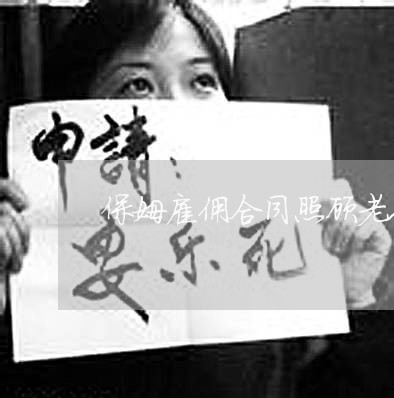 申請：
保姆雇佣合同照顾老
安乐死